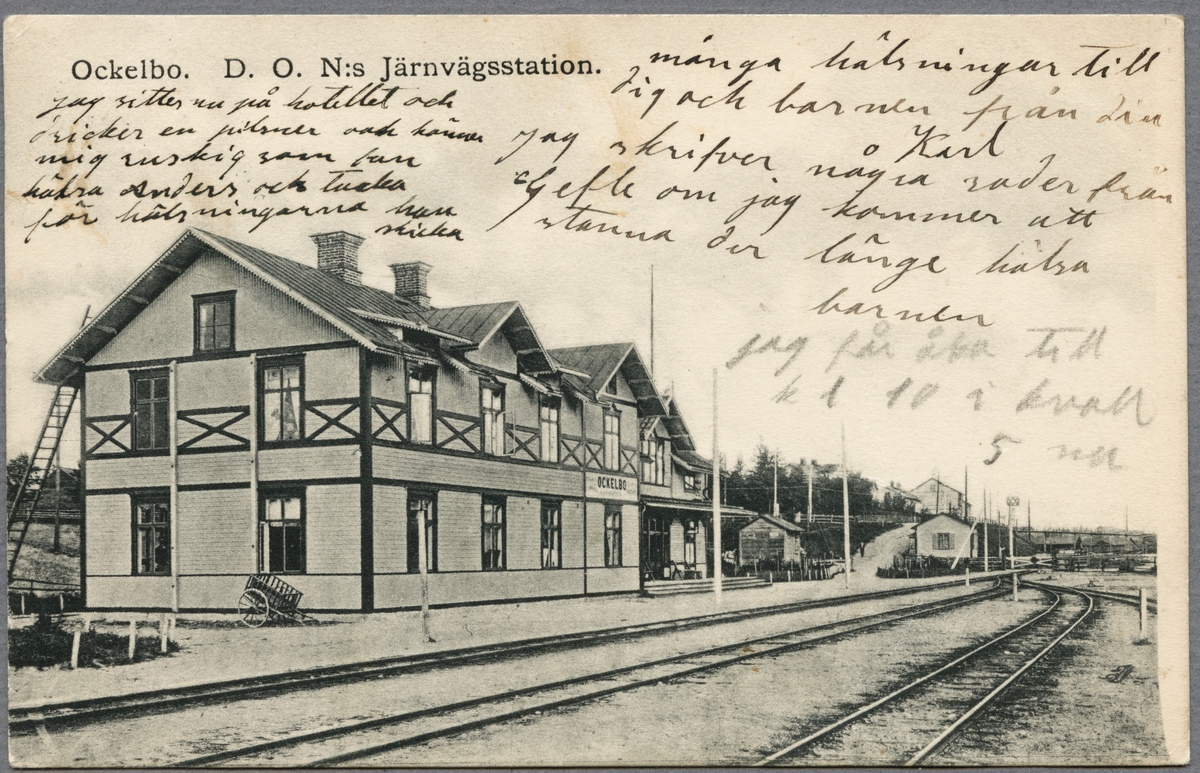 Ockelbo. D. O. N:s Järnvägsstation.
jag sitter nu på hotellet och
dricker en pilsner och känner
mig ruskig som fan
hälsa Anders och tacka
för hälsningarna han
skicka
många hälsningar till
dig och barnen från din
Karl
jag skrifver några rader från
Gefle om jag kommer att
stanna der länge hälsa
barnen
jag får åka till
kl 10 i kväll
5 nu
OCKELBO